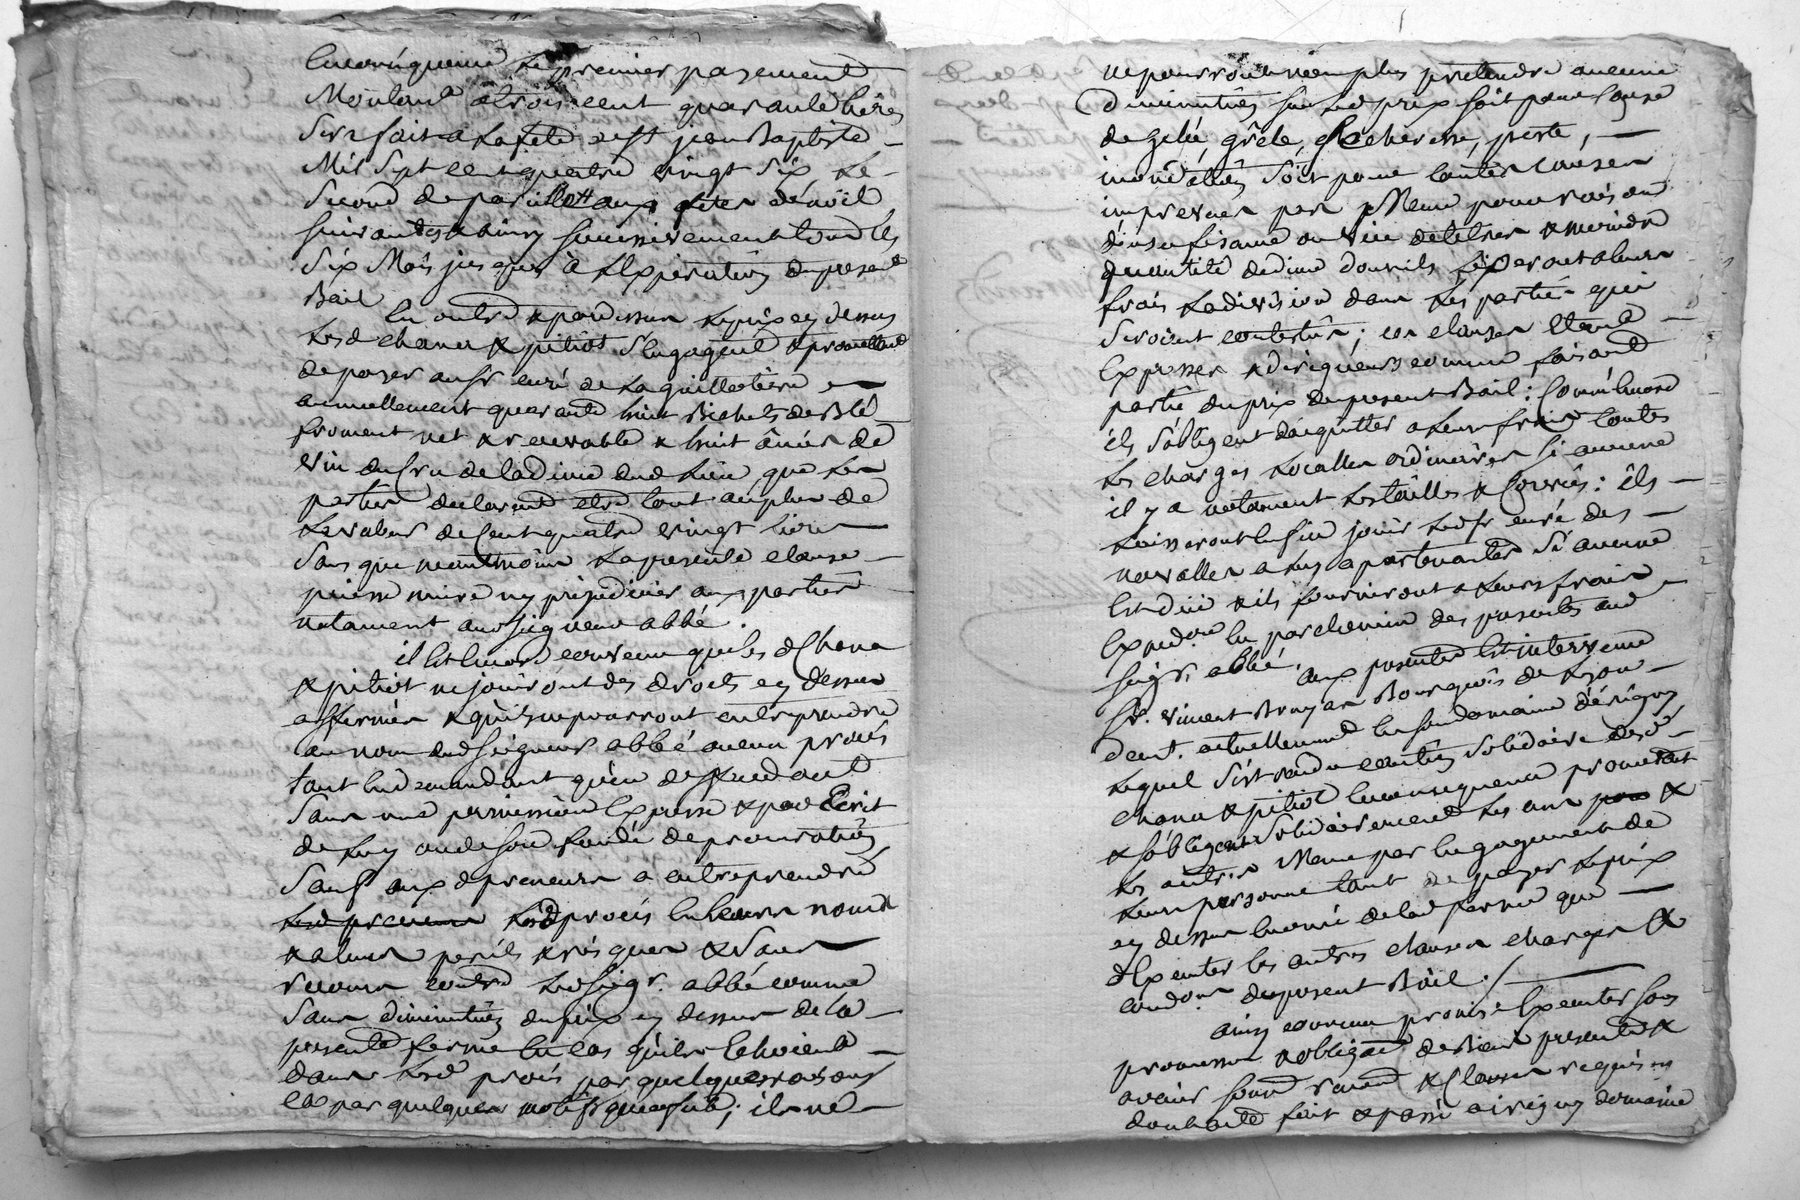 En conséquence le premier payement
Montant a trois cent quarante livres
sera fait a la fête de st jean Baptiste
Mil sept cent quatre vingt six, le
second de pareille aux fêtes de noël
suivantes & ainsy successivement tous les
six Mois jusques à l'Expiration du present
Bail
En outre & pardessus le prix cy dessus
lesd chana & pitiot s'engagent & promettent
de payer au sr curé de la guillotiere
annuellement quarante huit Bichets de Blé
froment net & recevable & huit ânées de
vin du Cru de la dime dud lieu, que les
parties declarent etre tout au plus de
la valeur de Cent quatre vingt livres
sans que neantmoins la presente clause
puisse nuire ny prejudicier aux parties
notament aud seigneur abbé.
il Est Encore convenu que les d Chana
& pitiot ne jouiront des droits cy dessus
affermés & qu'ils ne pourront entreprendre
au nom dud seigneur abbé aucun procès
tant En demandant qu'en deffendant
sans une permission Expresse & par Ecrit
de luy ou de son fondé de procuration
sauf aux d preneurs a entreprendre
lesd preneurs lesd procès En leurs noms
& a leurs perils & risques & sans
recours contre led seigr. abbé comme
sans diminution du prix cy dessus de la
presente ferme En cas qu'ils Echoient
dans lesd procès par quelques raisons
et par quelques motifs que ce fut; ils ne
ne pourront non plus pretendre aucune
diminution sur led prix soit pour cause
de gelée, grêle, secheresse, peste,
inondation soit pour toutes causes
imprevues pas Meme pour raison
d'insufisance ou vice de titres & moindre
quantité de dime dont ils feront a leurs
frais la division dans les parties qui
seroient contestées; ces clauses Etant
Expresses & de rigueurs comme faisant
partie du prix du present Bail: Comme Encore
ils s'obligent d'acquitter a leurs frais toutes
les charges localles ordinaires si aucune
il y a notament les tailles & Corvées: ils
laisseront En fin jouir led sr curé des
novalles a luy apartenantes si aucune
Est düe & ils fourniront a leurs frais
Expedon En parchemin des presentes aud
seigr abbé. aux presentes Est intervenu
sr. vincent Bruyas Bourgeois de Lyon
demt. actuellement En son domaine d'irigny
Lequel s'est rendu caution solidaire desd
chana & pitiot En consequence promettent
& s'obligent solidairement les uns pour &
les autres Meme par Engagement de
leurs personnes tant de payer le prix
cy dessus Enoncé de lad ferme que
d'Executer les autres clauses charges &
condons du present Bail ./.
ainsy convenu promis Executer sous
promesses & obligaon de Biens presents &
avenir soumons renons & Clauses requises
dont acte fait & passé a irigny domaine